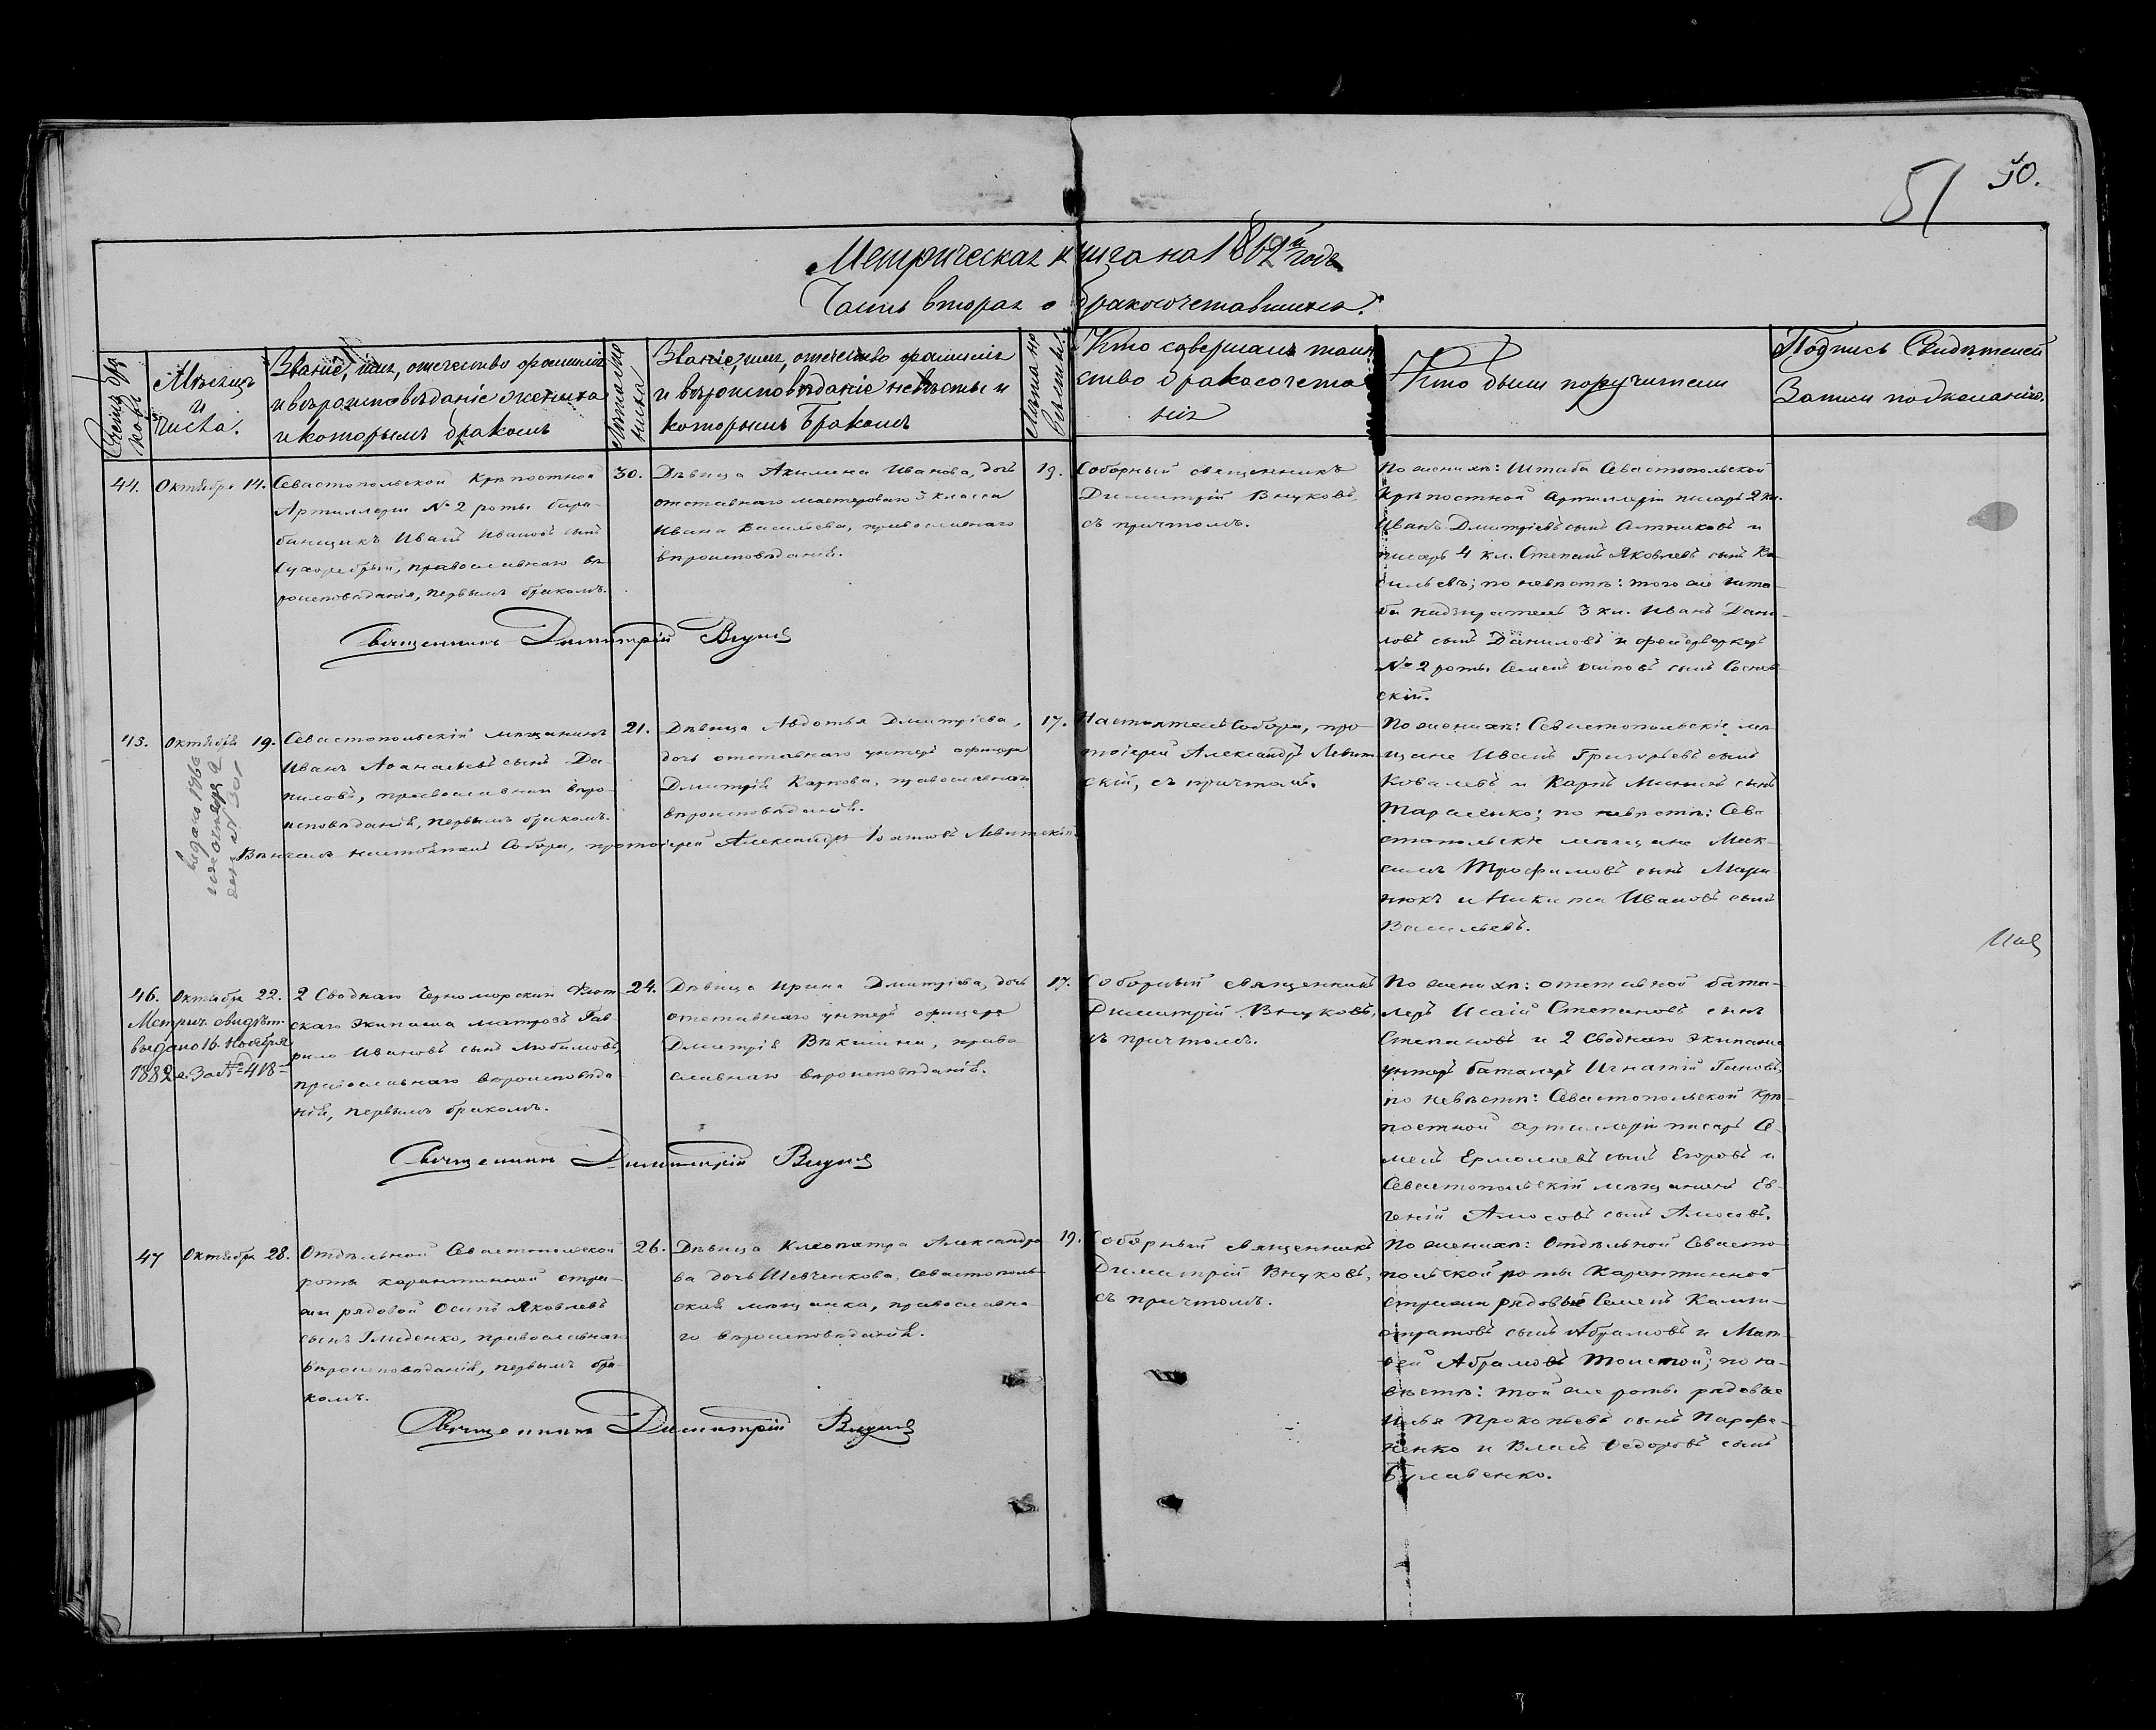 51 50.
Метрическая книга на 1862й годъ
Часть вторая о бракосочетавшихся.
Счетъ бра
ковъ
Мѣсяцъ
и
числа.
Званіе, имя, отечество фамилія
и вѣроисповѣданіе жениха
и которымъ бракомъ
Лѣта же
ниха
Званіе, имя, отечество фамилія
и вѣроисповѣданіе невѣсты и
которымъ Бракомъ
Лѣта не
вѣсты.
Кто совершалъ таин
ство бракосочета
нія
Кто были поручители
Подпись Свидѣтелей
Записи по желанію.
44.
Октября 14.
Севастопольской Крѣпостной
Артиллеріи № 2 роты бара-
банщикъ Иванъ Ивановъ сынъ
Сухоребрый, православнаго вѣ-
роисповѣданія, первымъ бракомъ.
30.
Дѣвица Акилина Иванова, дочь
отставнаго мастероваго 3 класса
Ивана Васильева, православнаго
вѣроисповѣданія.
19.
Соборный священникъ
Димитрій Внуковъ,
съ причтомъ.
По женихѣ: Штаба Севастопольской
Крѣпостной Артиллеріи писарь 2 кл.
Иванъ Дмитріевъ сынъ Ситниковъ и
писарь 4 кл. Степанъ Яковлевъ сынъ Ва-
сильевъ; по невѣстѣ: того же шта-
ба надзиратель 3 кл. Иванъ Дани-
ловъ сынъ Даниловъ и фейерверкеръ
№ 2 роты Семенъ Осиповъ сынъ
скій.
Священникъ Димитрій Внуковъ
45.
Октября 19.
Севастопольскій мѣщанинъ
Иванъ Аѳанасьевъ сынъ Да-
ниловъ, православнаго вѣро-
исповѣданія, первымъ бракомъ.
21.
Дѣвица Авдотья Дмитріева,
дочь отставнаго унтеръ офицера
Дмитрія Карпова, православнаго
вѣроисповѣданія.
17.
Настоятель Собора, про-
тоіерей Александръ Левит
скій, съ причтомъ.
По женихѣ: Севастопольскіе мѣ-
щане Иванъ Григорьевъ сынъ
Ковалевъ и Карпъ Мининъ сынъ
Тарасенко; по невѣстѣ: Сева
стопольскіе мѣщане Мак-
симъ Трофимовъ сынъ Мари-
нюкъ и Никита Ивановъ сынъ
Васильевъ.
Вѣнчалъ настоятель Собора, протоіерей Александръ Левитскій.
выдано
46.
Октября 22.
Метрич. свидѣт.
выдано 16. Ноября
1882 г. За № 418
2 Своднаго Черноморскаго Флот
скаго экипажа матросъ Гав-
рило Ивановъ сынъ Любимовъ,
православнаго вѣроисповѣда
нія, первымъ бракомъ.
24.
Дѣвица Ирина Дмитріева, дочь
отставнаго унтеръ офицера
Дмитрія Векшина, право
славнаго вѣроисповѣданія.
17.
Соборный священникъ
Димитрій Внуковъ,
съ причтомъ.
По женихѣ: отставной бата-
леръ Исай Степановъ сынъ
Степановъ и 2 Своднаго экипажа
унтеръ баталеръ Игнатій
по невѣстѣ: Севастопольской Крѣ-
постной артиллеріи писарь Се-
менъ Ермолаевъ сынъ Егоровъ и
Севастопольскій мѣщанинъ Ев-
геній Амосовъ сынъ Амосовъ.
Священникъ Димитрій Внуковъ
47
Октября 28.
Отдѣльной Севастопольской
роты карантинной стра-
жи рядовой Осипъ Яковлевъ
сынъ Гладенко, православнаго
вѣроисповѣданія, первымъ бра-
комъ.
26.
Дѣвица Клеопатра Александро
ва дочь Шевченкова, Севастополь-
ская мѣщанка, православна-
го вѣроисповѣданія.
19.
Соборный священникъ
Димитрій Внуковъ,
съ причтомъ.
По женихѣ: Отдѣльной Севасто-
польской роты Карантинной
стражи рядовые Семенъ Кали-
стратовъ сынъ Абрамовъ и Мат-
вей Абрамовъ Толстой; по не-
вѣстѣ: той же роты рядовые
Илья Прокопьевъ сынъ Парфе-
ненко и Власъ Ѳедоровъ сынъ
Булавенко.
Священникъ Димитрій Внуковъ